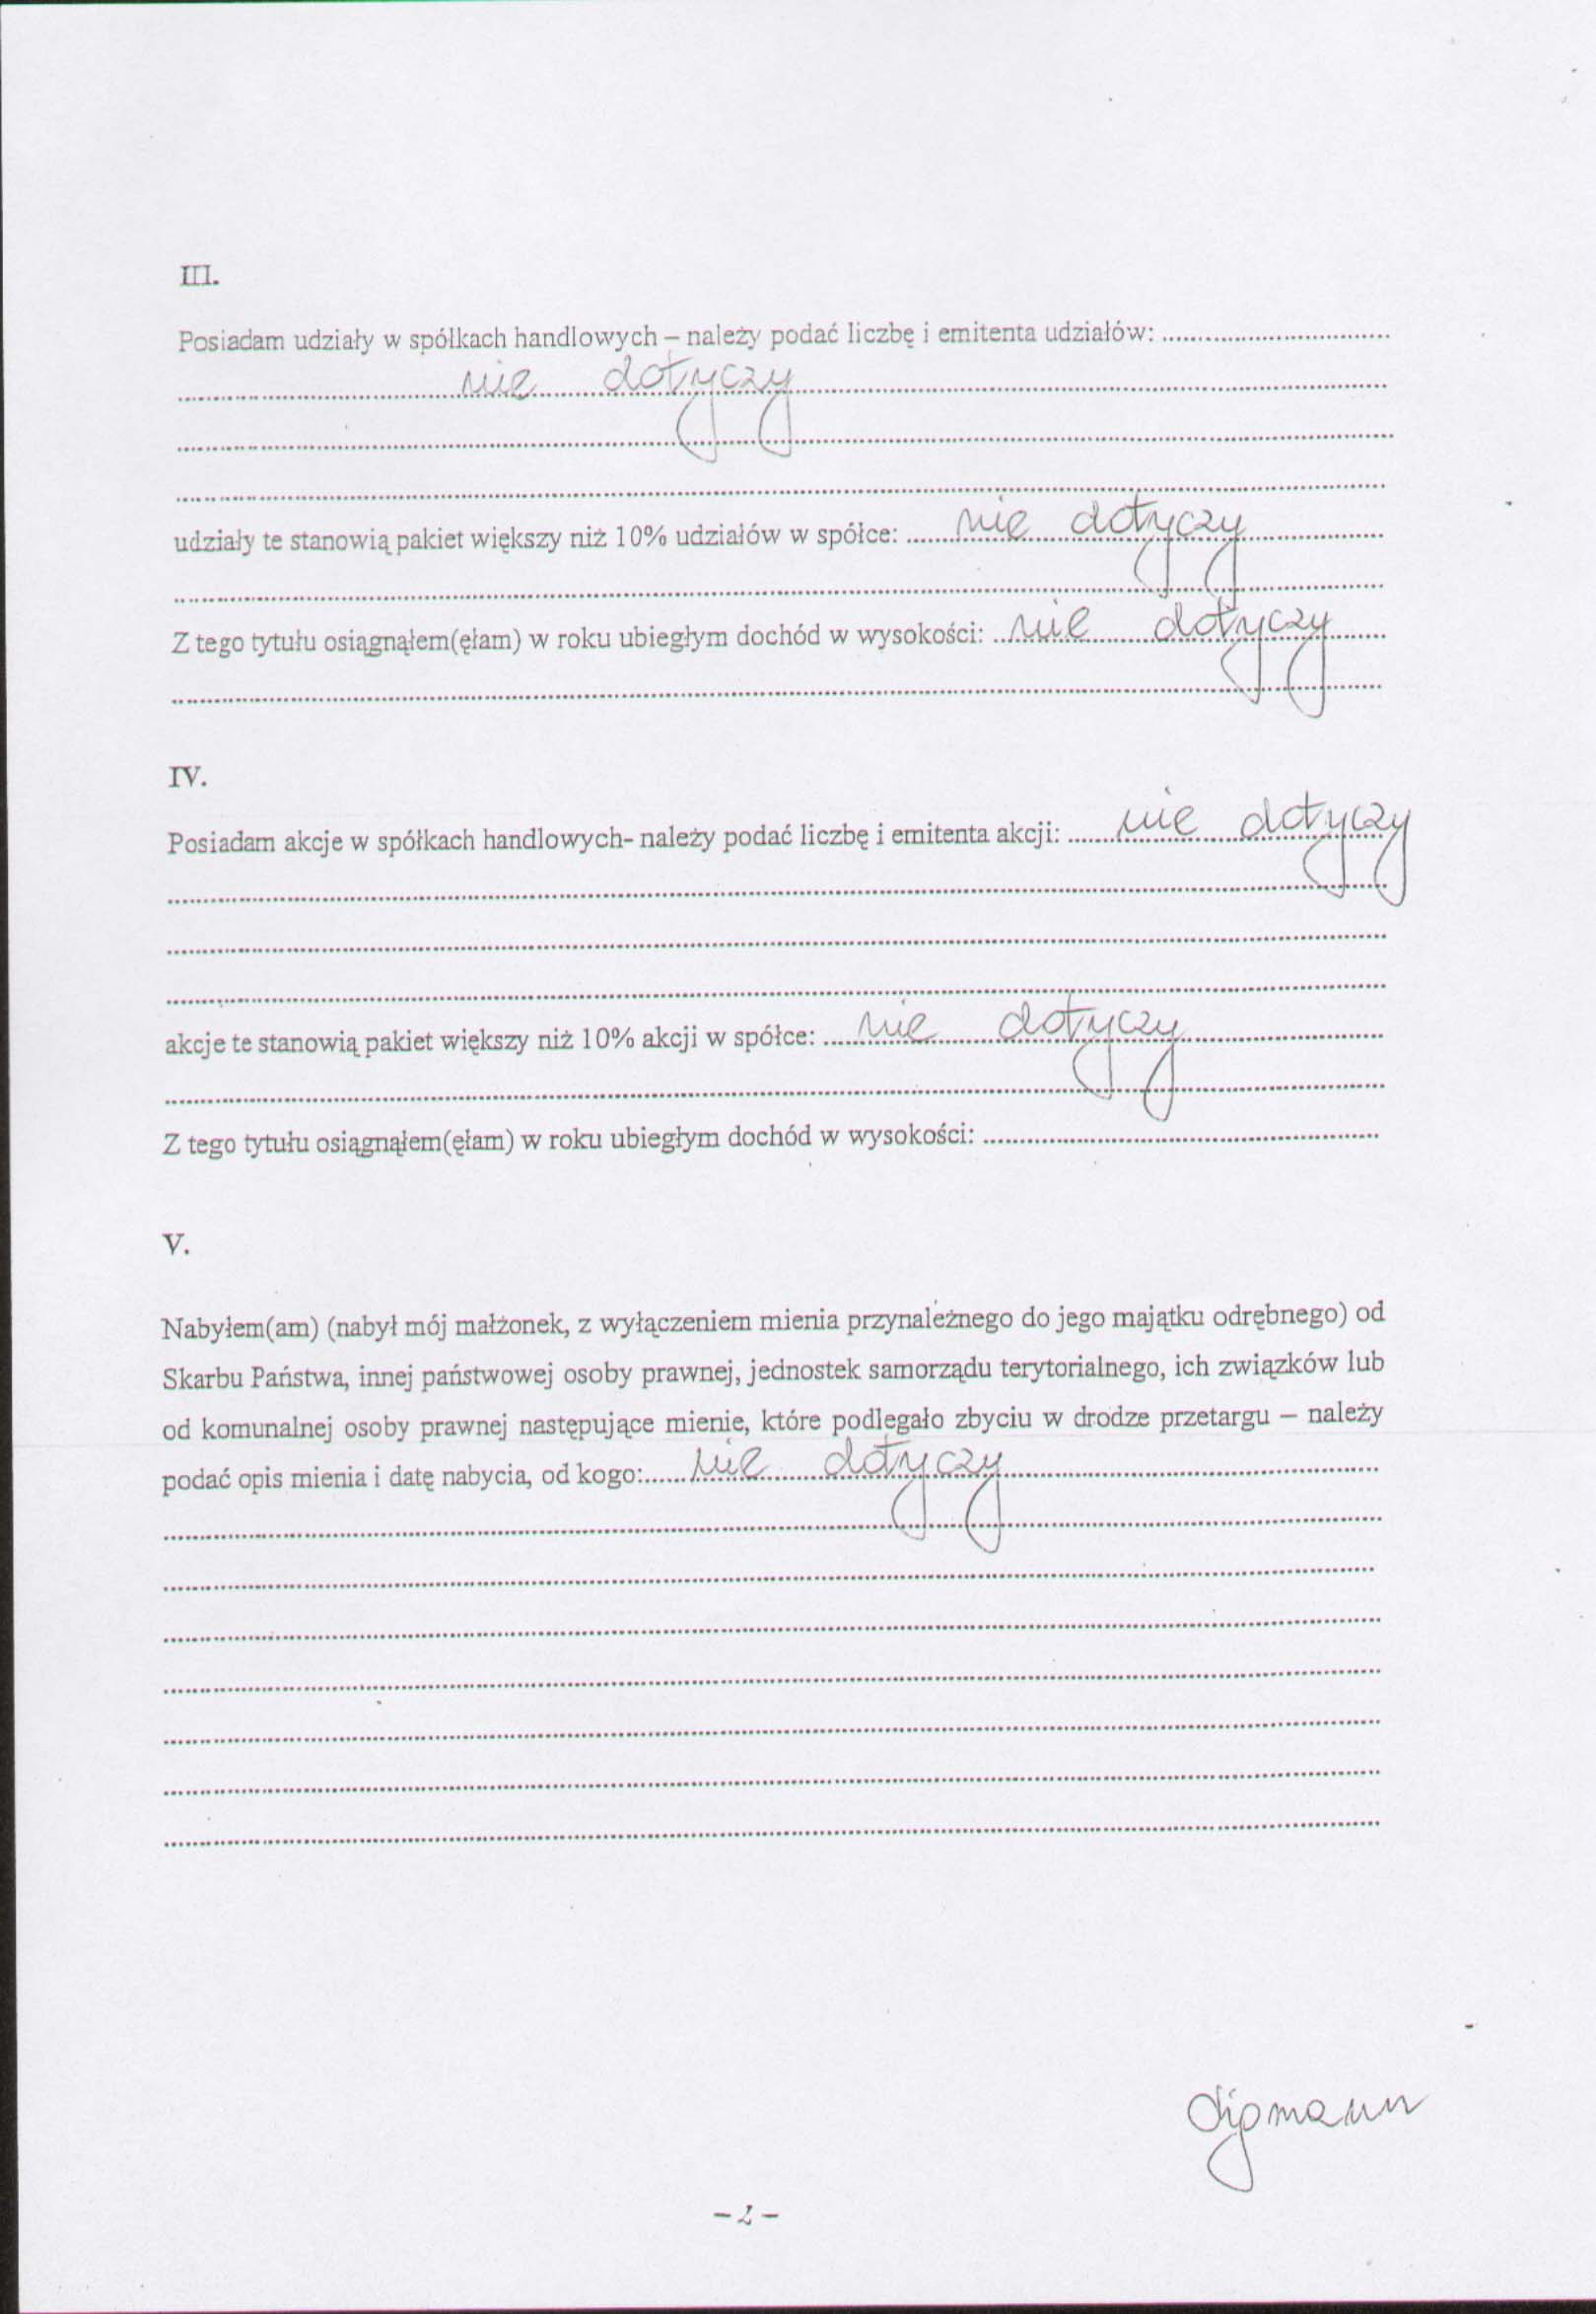 III.
Posiadam udziały w spółkach handlowych – należy podać liczbę i emitenta udziałów: ..............................
nie dotyczy
udziały te stanowią pakiet większy niż 10% udziałów w spółce: ...... nie dotyczy ......
Z tego tytułu osiągnąłem(ęłam) w roku ubiegłym dochód w wysokości: ... nie dotyczy ......
IV.
Posiadam akcje w spółkach handlowych- należy podać liczbę i emitenta akcji: ...... nie dotyczy
akcje te stanowią pakiet większy niż 10% akcji w spółce: ...... nie dotyczy ......
Z tego tytułu osiągnąłem(ęłam) w roku ubiegłym dochód w wysokości: ..............................
V.
Nabyłem(am) (nabył mój małżonek, z wyłączeniem mienia przynależnego do jego majątku odrębnego) od
Skarbu Państwa, innej państwowej osoby prawnej, jednostek samorządu terytorialnego, ich związków lub
od komunalnej osoby prawnej następujące mienie, które podlegało zbyciu w drodze przetargu – należy
podać opis mienia i datę nabycia, od kogo:...... nie dotyczy ......
– 2 –